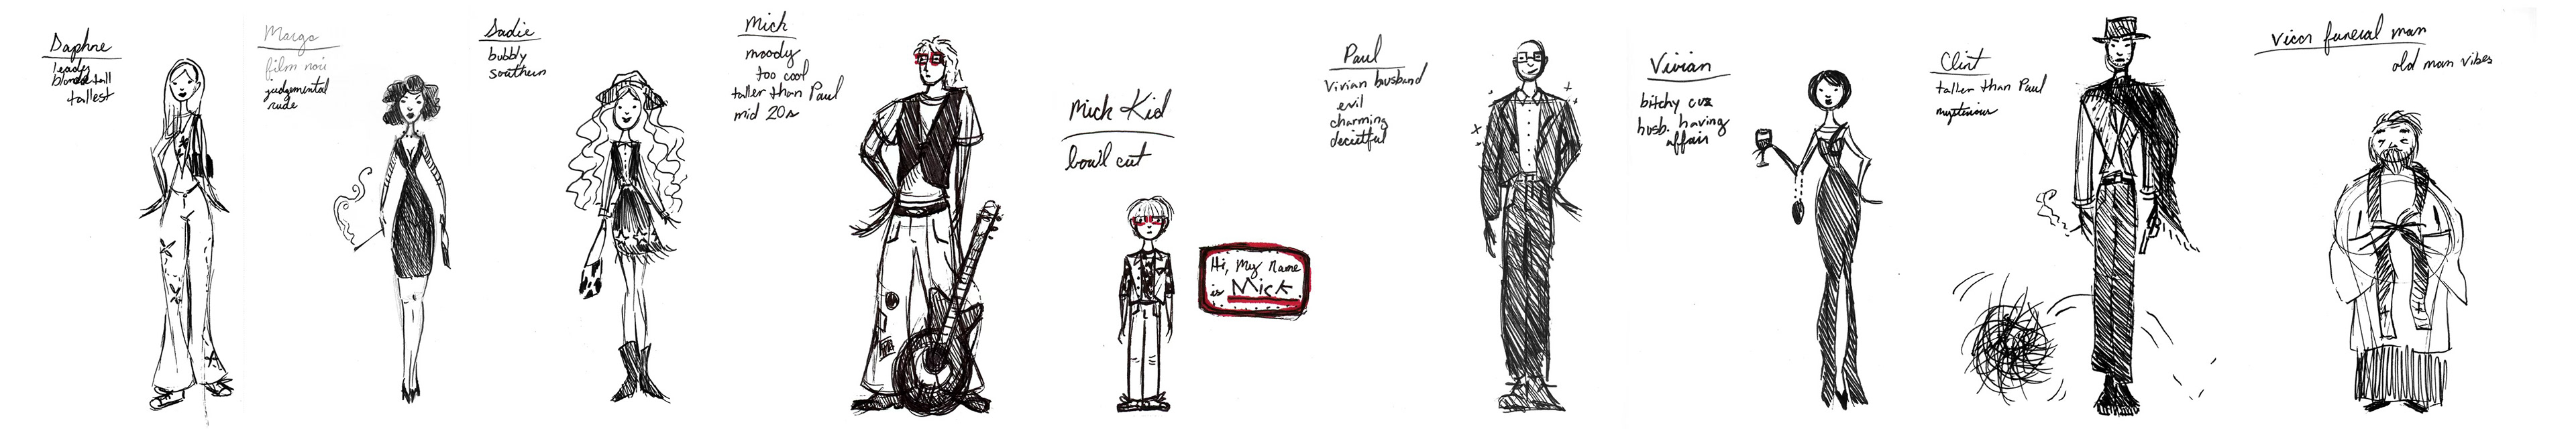 Daphne
leady
blonde tall
tallest
Margo
film noir
judgemental
rude
Sadie
bubbly
southern
Mick
moody
too cool
taller than Paul
mid 20s
Mick Kid
bowl cut
Hi, My name
is Mick
Paul
Vivian husband
evil
charming
decietful
Vivian
bitchy cuz
husb. having
affair
Clint
taller than Paul
mysterious
funeral man
old man vibes